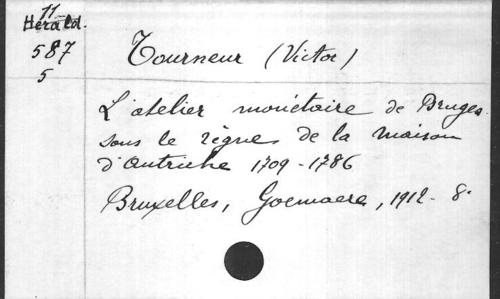 11
Hérald.
587
5
Tourneur (Victor)
L'atelier monétaire de Bruges
sous le règne de la maison
d'Autriche 1709-1786
Bruxelles, Goemaere, 1912 - 8°